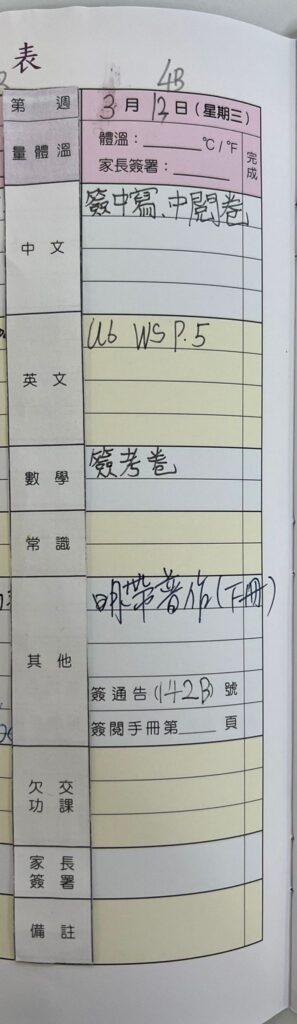 表
4B
第 週 3月12日(星期三)
量體溫 體溫：______℃/℉ 完成
家長簽署：______
中文 簽中寫、中閱卷
英文 U6 WS P.5
數學 簽考卷
常識
其他 明帶著作(下冊)
簽通告(142B)號
簽閱手冊第____頁
欠交功課
家長簽署
備註